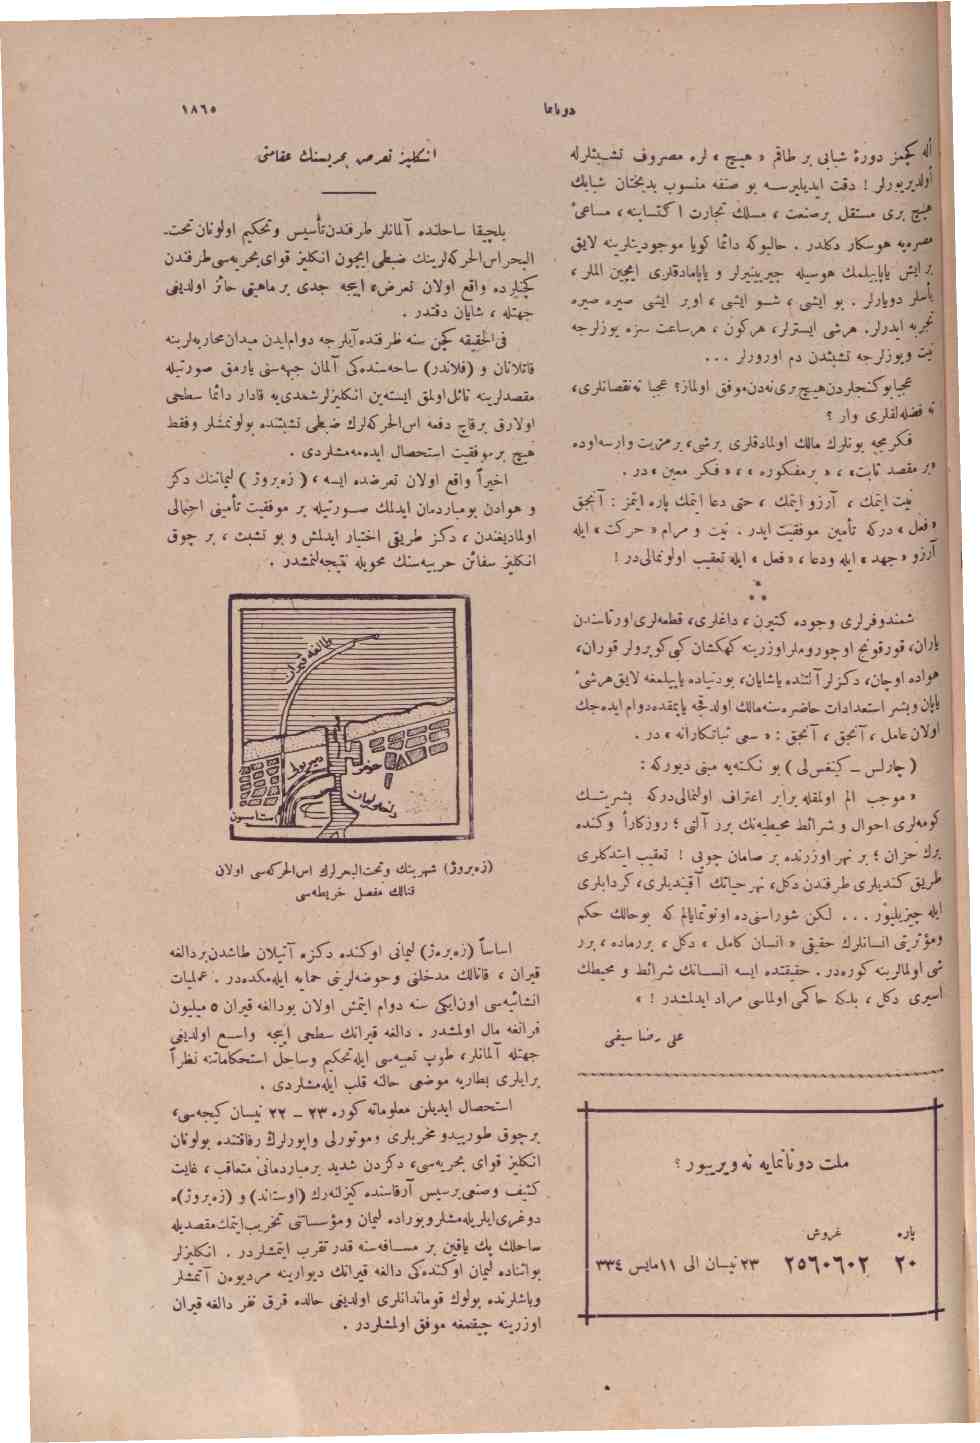 دونانما
١٨٦٥
اله كچمز دورهٔ شبابى بر طاقم « هيچ » لره مصروف تشبثلرله
أولديريورلر ! دقت ايديليرسه بو صنفه منسوب بدبختان شبابك
هيچ برى مستقل برصنعت ، مسلك تجارت اكتسابنه ، مساعىٔ
مصرميه هوسكار دكلدر . حالبوكه دائما كويا موجوديتلرينه لايق
برايش ياپابيلمك هوسيله چيرپينيرلر و ياپامادقلرى ايچين الملر ،
يأسلر دويارلر . بو ايشى ، شو ايشى ، اوبر ايشى صيره صيره
تجربه ايدرلر. هرشى ايسترلر، هركون ، هرساعت سزه يوزلرجه
نيت ويوزلرجه تشبثدن دم اورورلر ...
عجبا بوكنجلردن هيچ برى نه‌دن موفق اولماز؟ عجبا نه نقصانلرى،
نه فضله‌لقلرى وار ؟
فكرمجه بونلرك مالك اولمادقلرى برشى، برمزيت وارسه اوده
«بر مقصد ثابت» ، « برمفكوره » ، « فكر معين » در .
نيت ايتمك ، آرزو ايتمك ، حتى دعا ايتمك پاره ايتمز : آنجق
«فعل » دركه تأمين موفقيت ايدر . نيت و مرام « حركت » ايله
آرزو « جهد » ايله ودعا ، « فعل » ايله تعقيب اولونمالى‌در !
* * *
شمندوفرلرى وجوده كتيرن ، داغلرى، قطعه‌لرى اورتاسندن
ياران، قورقونج اوچوروملر اوزرينه كهكشان كبى كوپرولر قوران،
هواده اوچان، دكزلر آلتنده ياشايان، بودنياده ياپيلمغه لايق هرشىٔ
ياپان وبشر استعدادات حاضره‌سنه مالك اولدقجه ياپمقده دوام ايده‌جك
اولان عامل ، آنجق ، آنجق : « سعى ثباتكارانه » در .
( چارلس ـ كينغسلى ) بو نكته‌يه مبنى ديوركه :
« موجب الم اولمقله برابر اعتراف اولنمالى‌دركه بشريتك
كومه‌لرى احوال و شرائط محيطيه‌نك برر آلتى ؛ روزكار اوكنده
برك خزان ؛ بر نهر اوزرنده بر صامان چوپى ! تعقيب ايتدكلرى
طريق كنديلرى طرفندن دكل، نهر حياتك آقينديلرى، كردابلرى
ايله چيزيليور ... لكن شوراسنى‌ده اونوتمايالم كه بوحالك حكم
ومؤثريتى انسانلرك حقيقى « انسان كامل » دكل ، برر ماده ، برر
شى اولمالرينه كوره‌در. حقيقتده ايسه انسانك شرائط و محيطك
اسيرى دكل ، بلكه حاكمى اولماسى مراد ايدلمشدر ! »
على رضا سيفى
ملت دونانمايه نه ويريور ؟
پاره غروش
٢٠ ٢٥٦٠٦٠٢ ٢٣ نيسان الى ١١ مايس ٣٣٤
انكليز تعرض بحريسنك عقامتى
بلچيقا ساحلنده آلمانلر طرفندن تأسيس وتحكيم اولونان تحت‌ـ
البحر اس الحركه‌لرينك ضبطى ايچون انكليز قواى بحريه‌سى طرفندن
كچنلرده واقع اولان تعرض، ايچه جدى بر ماهيتى حائز اولديغى
جهتله ، شايان دقتدر .
فى‌الحقيقه كچن سنه ظرفنده آيلرجه دوام ايدن ميدان محاربه‌لرينه
قاتلانان و (فلاندر) ساحه‌سنده‌كى آلمان جبهه‌سنى يارمق صورتيله
مقصدلرينه نائل اولمق ايسته‌ين انكليزلر شمدى‌يه قادار دائما سطحى
اولارق برقاچ دفعه اس الحركه‌لرك ضبطى تشبثنده بولونمشلر وفقط
هيچ برموفقيت استحصال ايده‌مه‌مشلردى .
اخيراً واقع اولان تعرضده ايسه ، ( زه‌بروژ ) ليماننك دكز
و هوادن بومباردمان ايدلمك صورتيله بر موفقيت تأمينى احتمالى
اولماديغندن ، دكز طريقى اختيار ايدلمش و بو تشبث ، بر چوق
انكليز سفائن حربيه‌سنك محويله نتيجه‌لنمشدر .
دالغه قيران
حوض
استاسيون
(زه‌بروژ) شهرينك وتحت‌البحرلرك اس الحركه‌سى اولان
قنالك مفصل خريطه‌سى
اساساً (زه‌بروژ) ليمانى اوكنده دكزه آتيلان طاشدن بردالغه
قيران ، قانالك مدخلنى وحوضه‌لرينى حمايه ايله‌مكده‌در . عمليات
انشائيه‌سى اون‌ايكى سنه دوام ايتمش اولان بودالغه قيران ٥ ميليون
فرانغه مال اولمشدر . دالغه قيرانك سطحى ايچه واسع اولديغى
جهتله آلمانلر، طوپ تعبيه‌سى ايله تحكيم وساحل استحكاماتنه نظراً
برايلرى بطاريه موضعى حالنه قلب ايله‌مشلردى .
استحصال ايديلن معلوماته كوره ٢٣ ـ ٢٢ نيسان كيجه‌سى،
برچوق طورپيدو مخربلرى وموتورلى واپورلرك رفاقتنده بولونان
انكليز قواى بحريه‌سى، دكزدن شديد برمباردمانى متعاقب ، غايت
كثيف وصنعى برسيس آرقاسنده كيزلنه‌رك (اوستاند) و (زه‌بروژ)ه
دوغرى ايلريله‌مشلر وبوراده ليمان ومؤسساتنى تخريب ايتمك مقصديله
ساحلك پك ياقين بر مسافه‌سنه قدر تقرب ايتمشلردر . انكليزلر
بواثناده ليمان اوكنده‌كى دالغه قيرانك ديوارينه مرديوه‌ن آتمشلر
وباشلرنده بولوك قوماندانلرى اولديغى حالده قرق نفر دالغه قيران
اوزرينه چيقمغه موفق اولمشلردر .